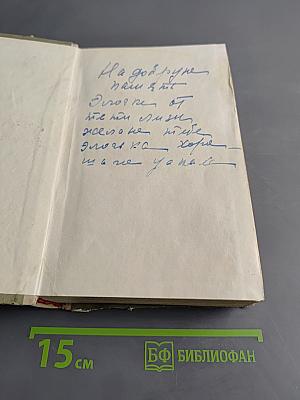 На добрую
память
Элочке от
тети Лизы
желаю тебе
Элочка хоро-
15 см
БФ БИБЛИОФАН